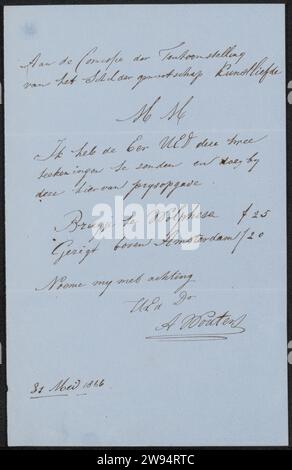 Aan de Comissie der Tentoonstelling
van het Schilder genootschap Kunstliefde
M M
Ik heb de Eer UEd deze twee
teekeningen te zenden en doe by
deze hiervan prysopgave
Brugje te f 25
Gezigt boven Amsterdam f 20
Noeme my met achting
UEd Dr
A Wouters
31 Mei
alamy
2W94RTC